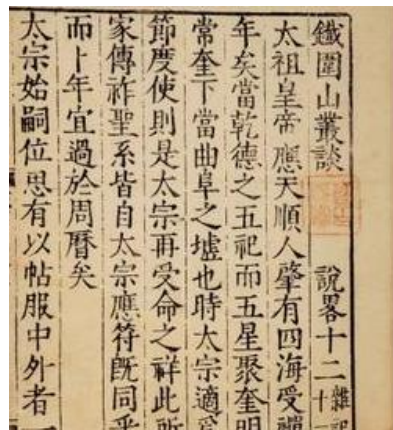 鐵圍山叢談
說畧十二 雜記
十二
太祖皇帝應天順人肇有四海受禪
年矣當乾德之五祀而五星聚奎明
常奎下當曲阜之墟也時太宗適為
節度使則是太宗再受命之祥此所
家傳祚聖系皆自太宗應符既同乎
而卜年宜過於周曆矣
太宗始嗣位思有以帖服中外者一